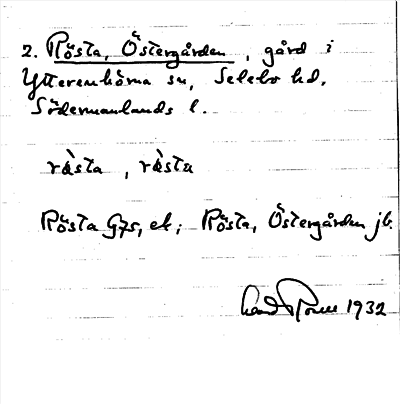 2. Rösta, Östergården, gård i
Ytterenhörna sn, Selebo hd,
Södermanlands l.
rö̀sta, rö̀sta
Rösta Gfs, ek; Rösta, Östergården jb.
1932